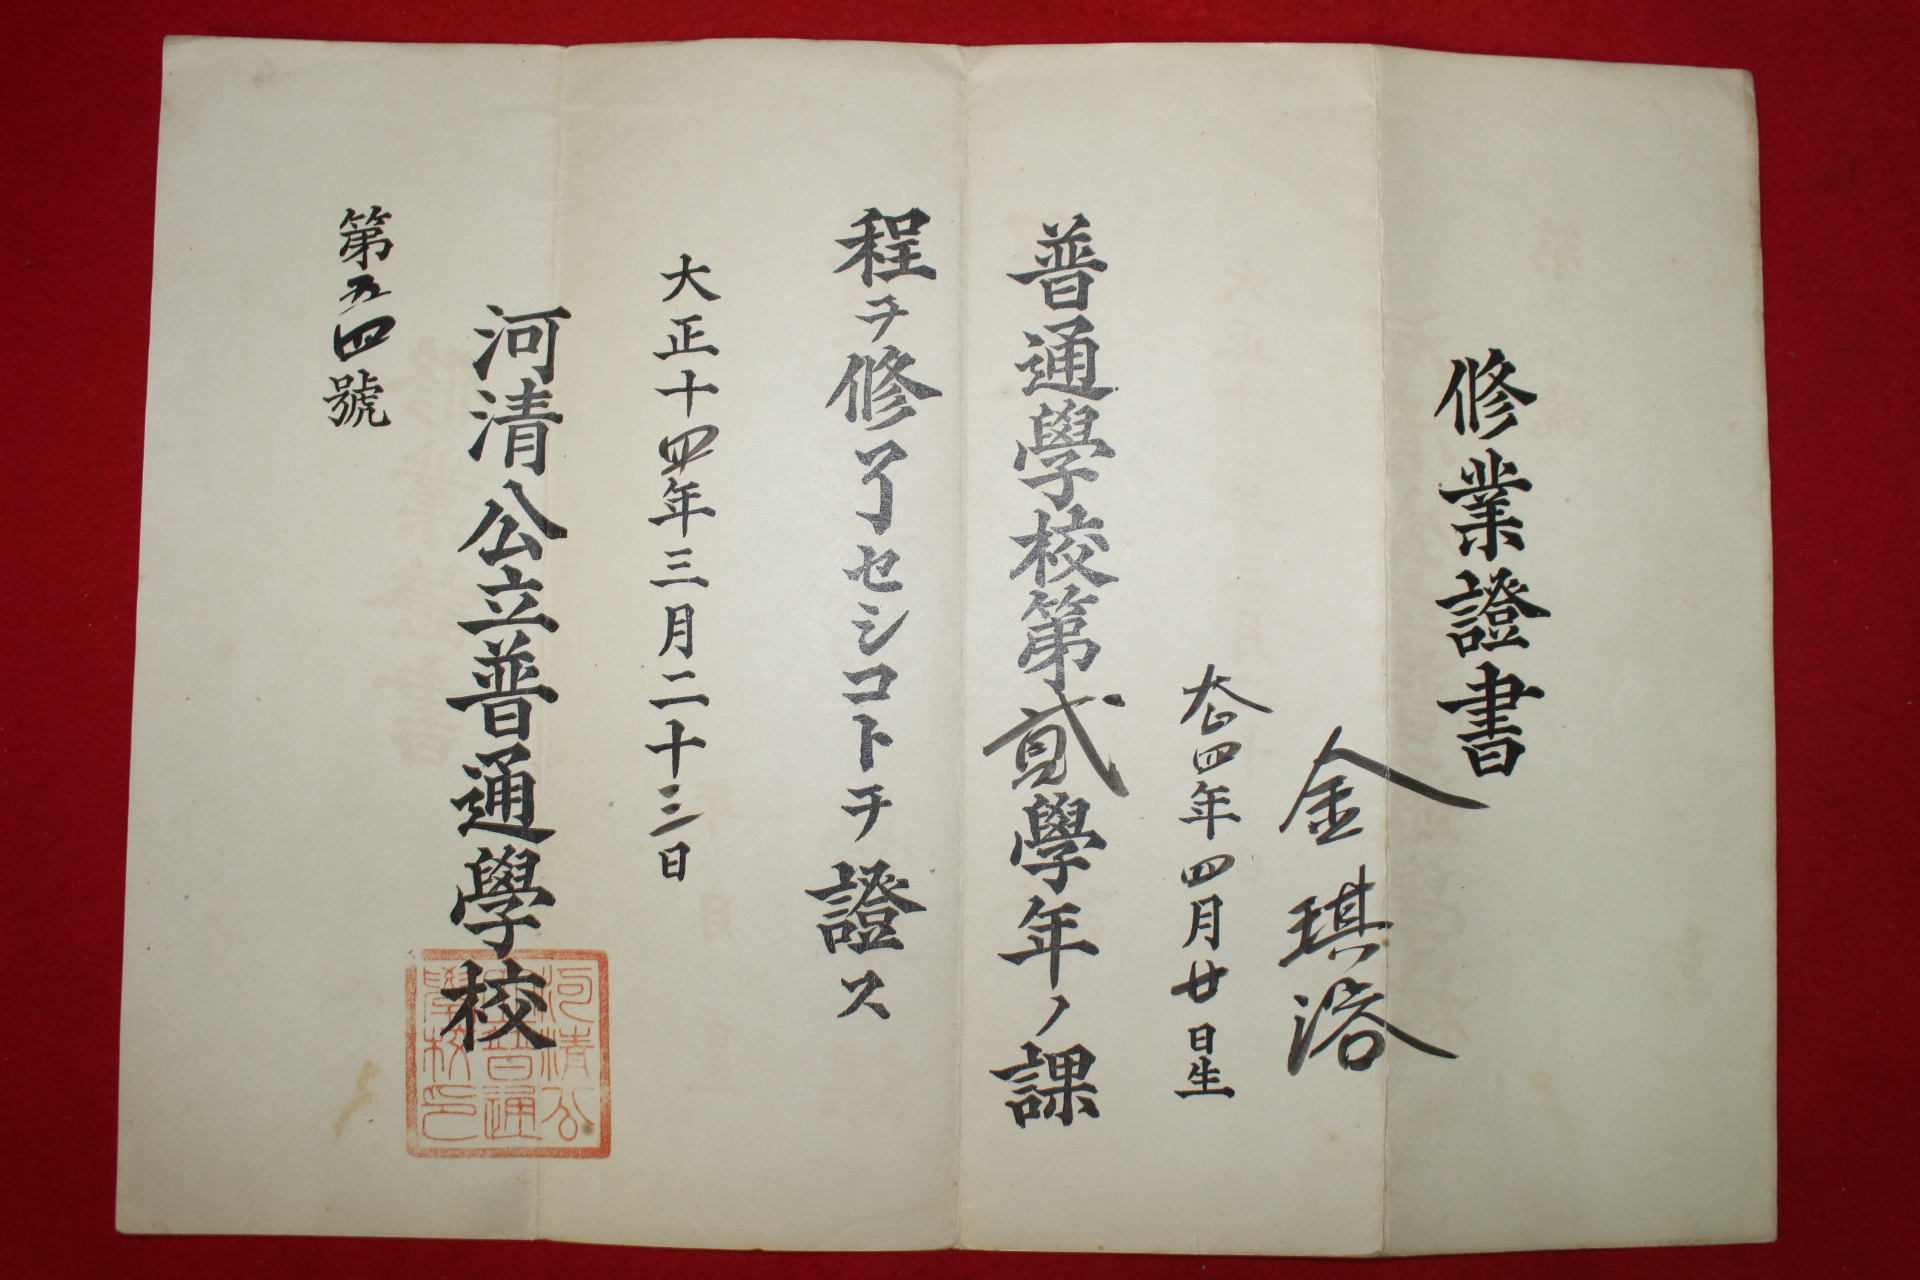 修業證書
金琪洛
大正四年四月廿日生
普通學校第貳學年ノ課
程ヲ修了セシコトヲ證ス
大正十四年三月二十三日
河清公立普通學校
河清公立普通學校印
第五四號